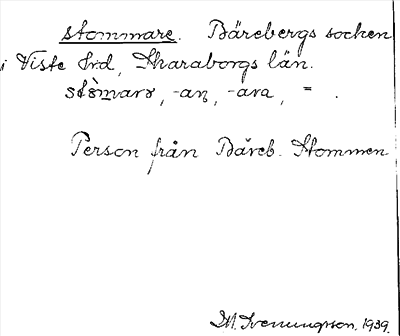 stommare. Bärebergs socken
i Viste hrd, Skaraborgs län.
stòmarə, -aɳ, -ara, = .
Person från Bäreb. Stommen
M. Svenungsson. 1939.